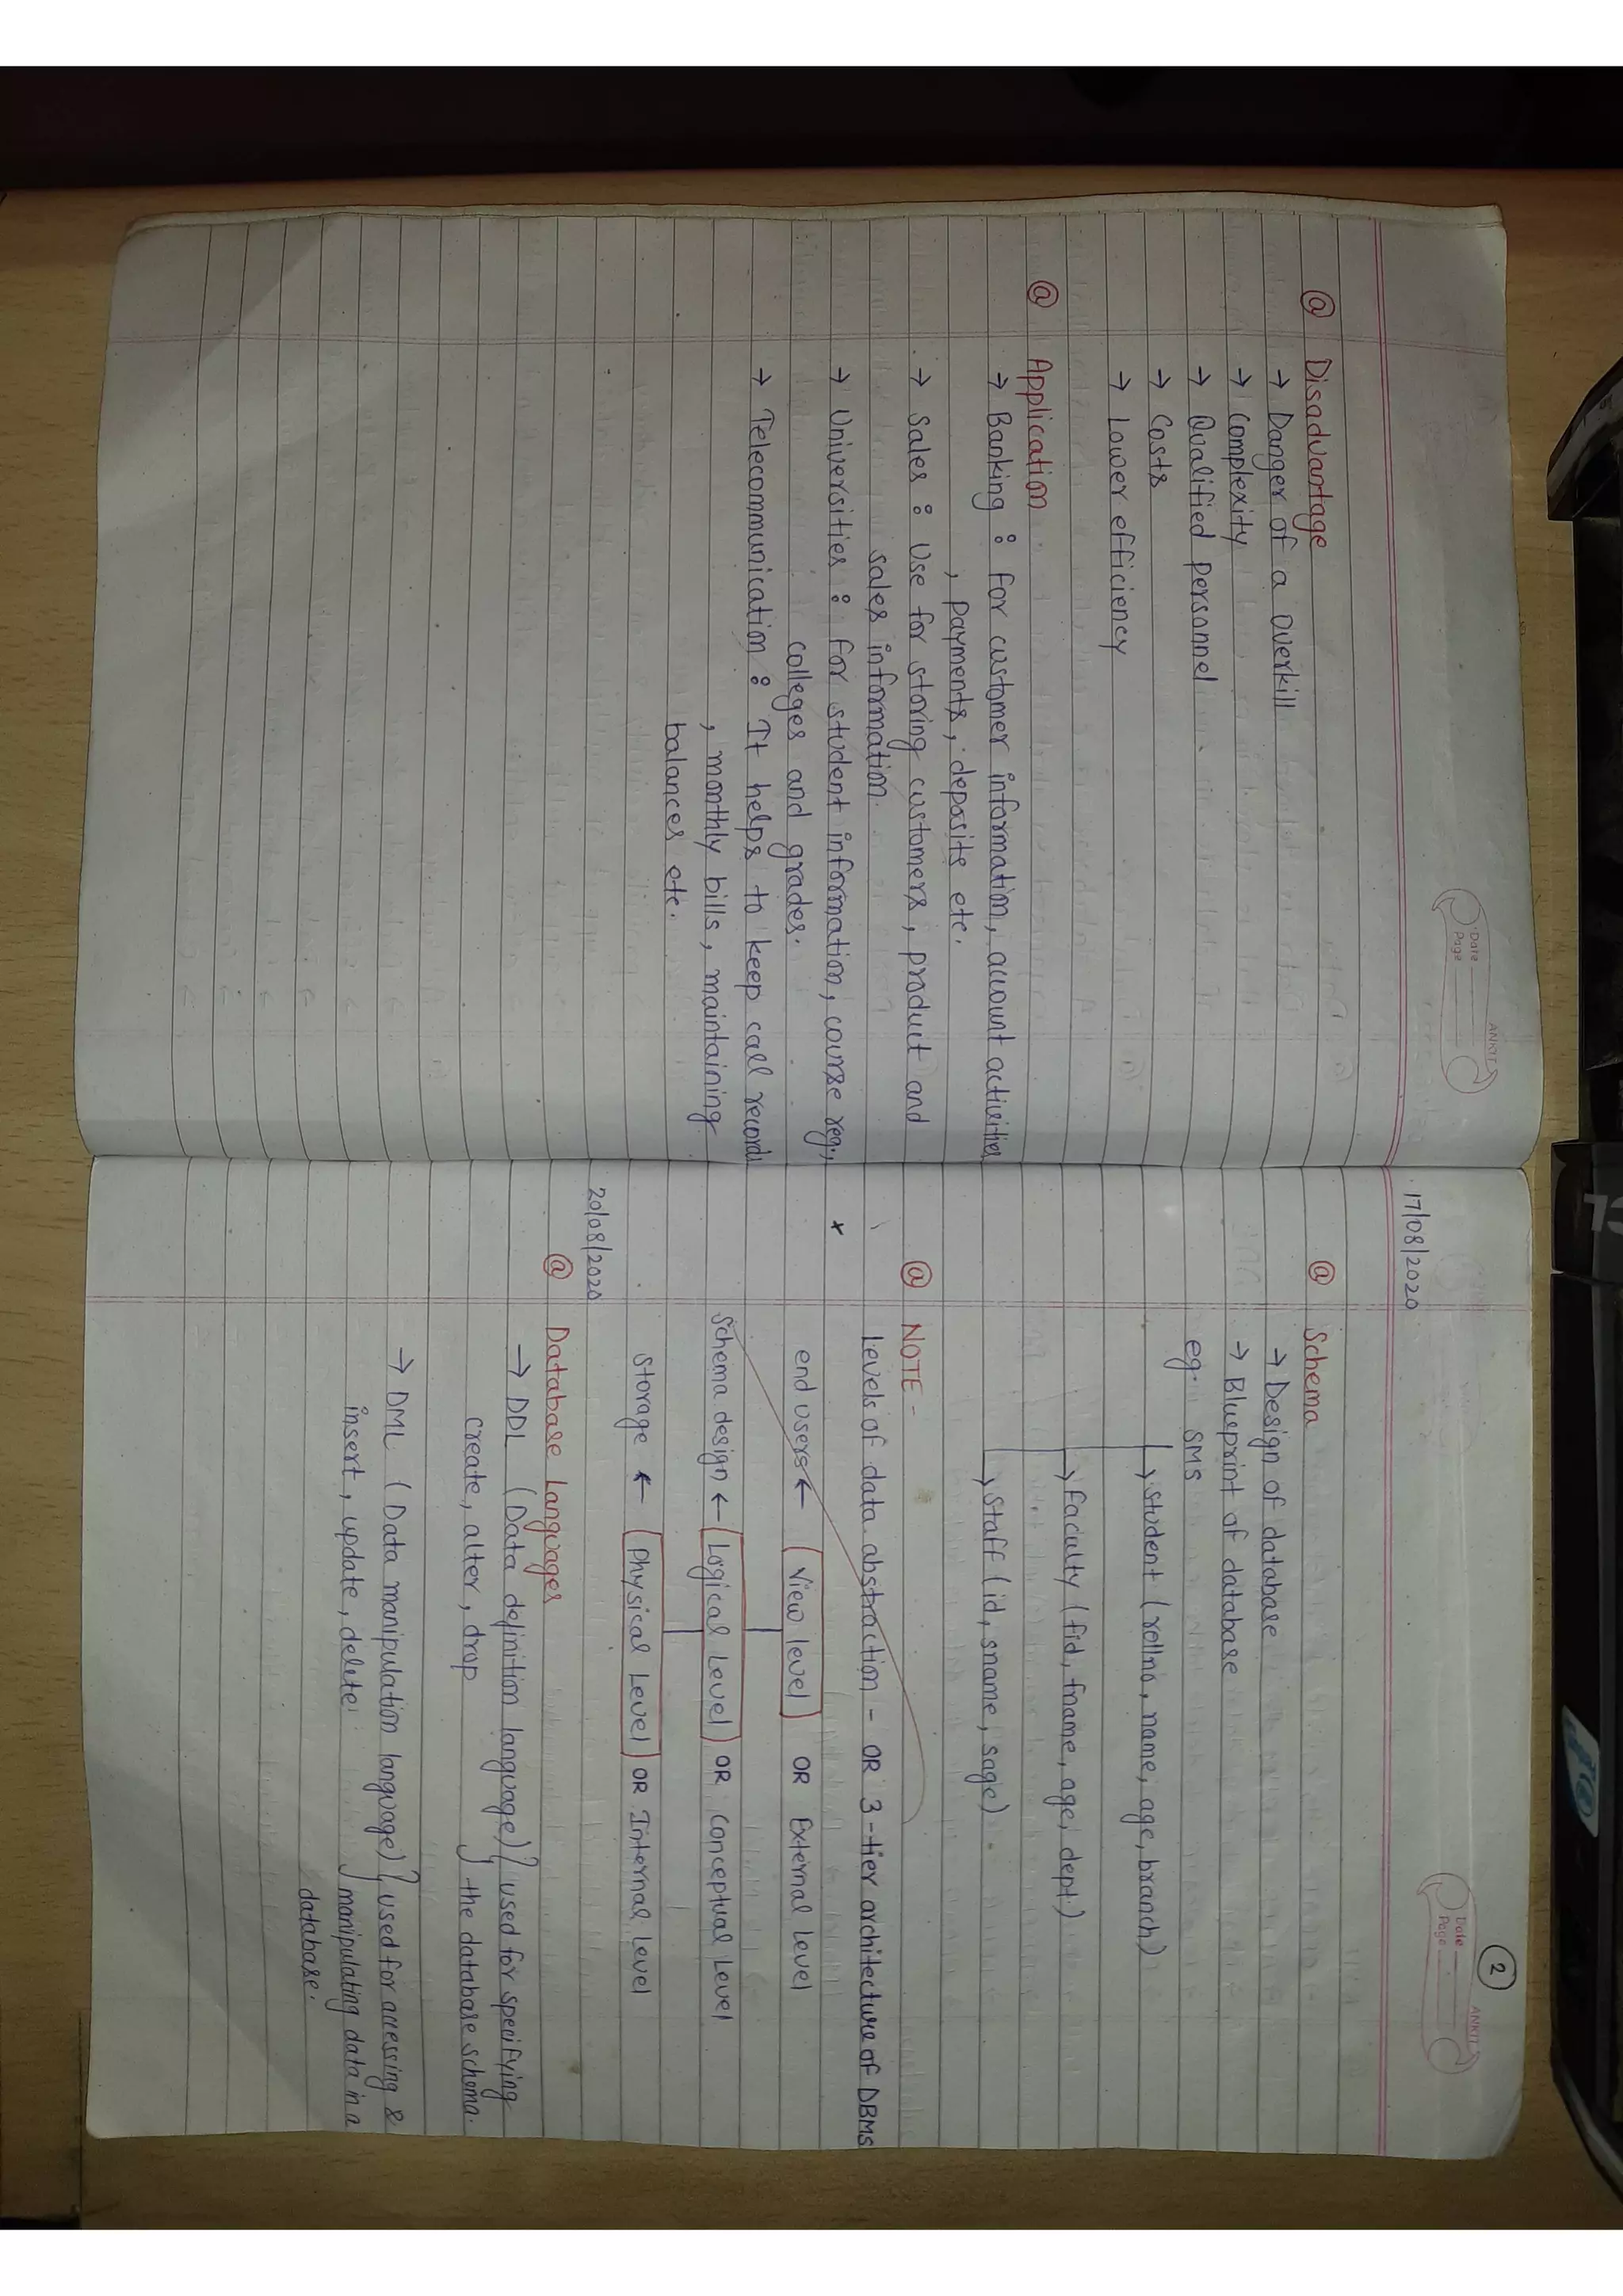 Date
Page
ANKIT
@ Disadvantage
→ Danger of a Overkill
→ Complexity
→ Qualified personnel
→ Costs
→ Lower efficiency
@ Application
→ Banking : For customer information, account activities
, payments, deposits etc.
→ Sales : Use for storing customers, product and
sales information.
→ Universities : For student information, course reg.,
colleges and grades.
→ Telecommunication : It helps to keep call records
, monthly bills, maintaining
balances etc.
2
Date
Page
ANKIT
17/08/2020
@ Schema
→ Design of database
→ Blueprint of database
eg. SMS
→ Student (rollno, name, age, branch)
→ Faculty (fid, fname, age, dept.)
→ Staff (id, sname, sage)
@ NOTE -
Levels of data abstraction - OR 3-tier architecture of DBMS
end users ← View level OR External Level
Schema design ← Logical Level OR Conceptual Level
Storage ← Physical Level OR Internal Level
20/08/2020
@ Database Languages
→ DDL (Data definition language) } used for specifying
create, alter, drop } the database schema.
→ DML (Data manipulation language) } used for accessing &
insert, update, delete } manipulating data in a
database.